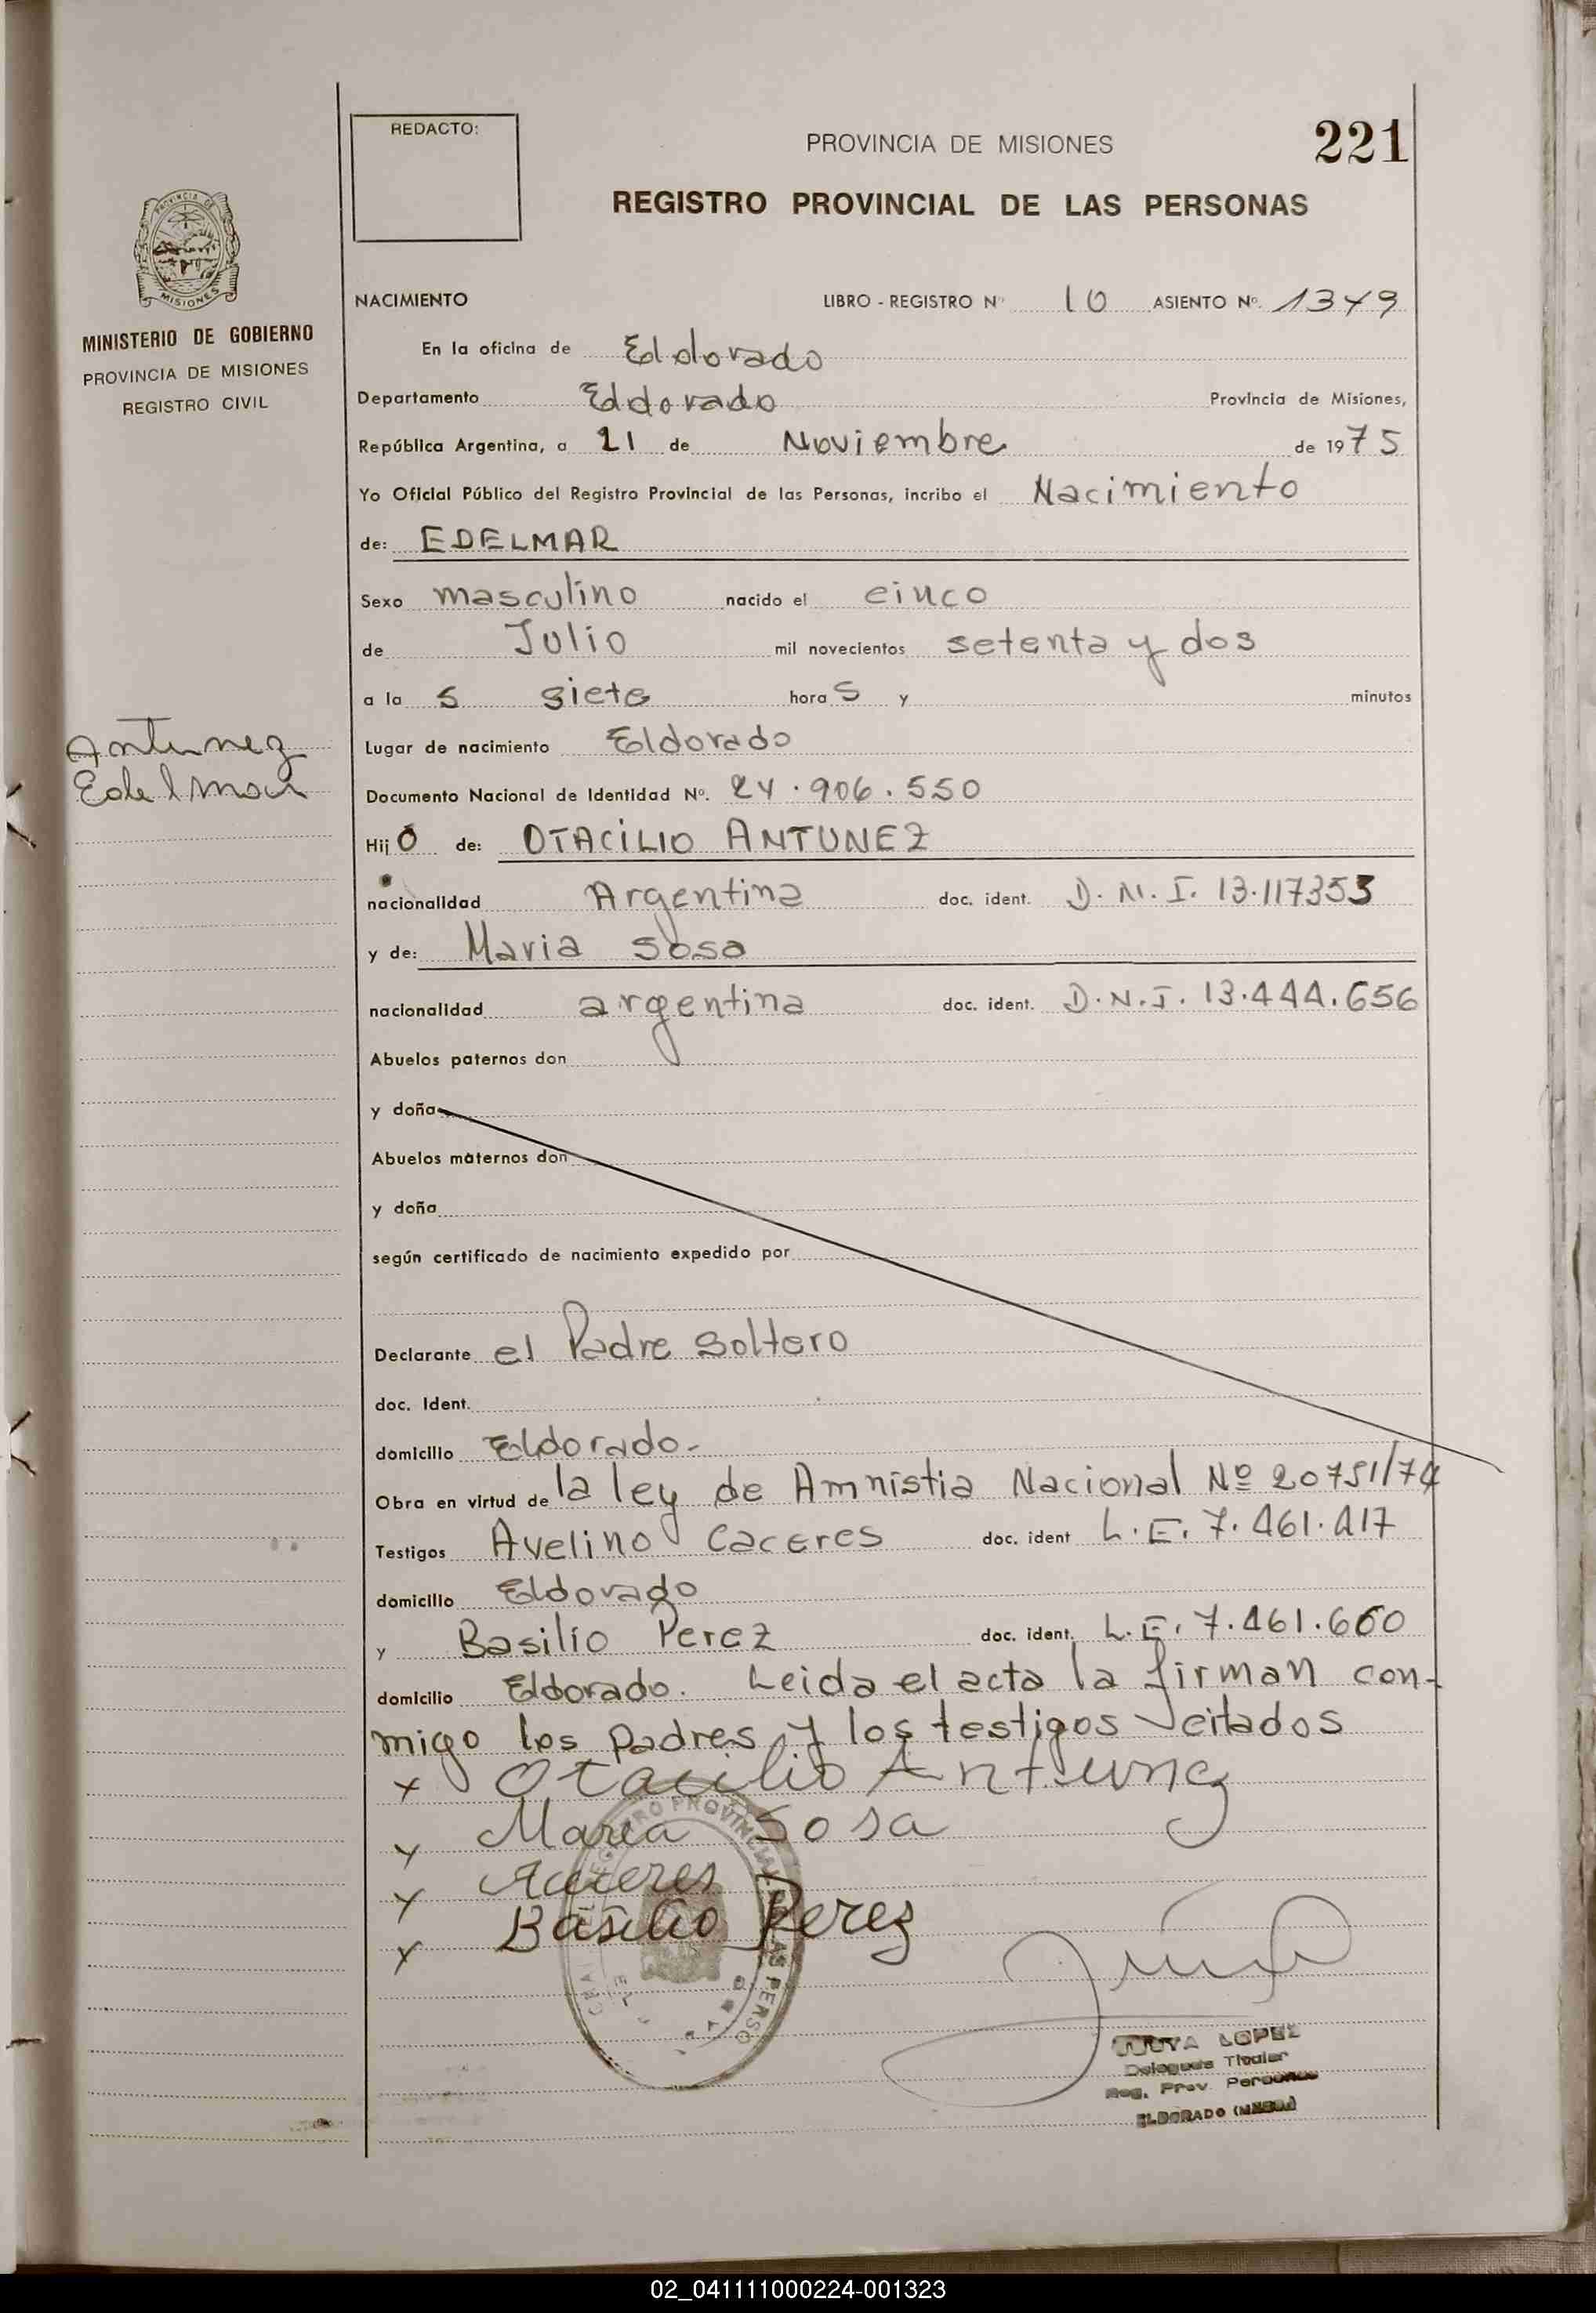 REDACTO:
PROVINCIA DE MISIONES
221
REGISTRO PROVINCIAL DE LAS PERSONAS
PROVINCIA DE
MISIONES
MINISTERIO DE GOBIERNO
PROVINCIA DE MISIONES
REGISTRO CIVIL
NACIMIENTO LIBRO - REGISTRO N° 10 ASIENTO Nº. 1349
En la oficina de Eldorado
Departamento Eldorado Provincia de Misiones,
República Argentina, a 21 de Noviembre de 1975
Yo Oficial Público del Registro Provincial de las Personas, incribo el Nacimiento
de: EDELMAR
Sexo masculino nacido el cinco
de Julio mil novecientos setenta y dos
a la s siete hora s y minutos
Antunez
Edelmar
Lugar de nacimiento Eldorado
Documento Nacional de Identidad Nº. 24.906.550
Hij o de: OTACILIO ANTUNEZ
nacionalidad Argentina doc. ident. D.N.I. 13.117353
y de: Maria Sosa
nacionalidad argentina doc. ident. D.N.I. 13.444.656
Abuelos paternos don
y doña
Abuelos maternos don
y doña
según certificado de nacimiento expedido por
Declarante el Padre soltero
doc. Ident.
domicilio Eldorado.-
Obra en virtud de la ley de Amnistia Nacional Nº 20751/74
Testigos Avelino Caceres doc. ident L.E. 7.461.417
domicilio Eldorado
y Basilio Perez doc. ident. L.E. 7.461.660
domicilio Eldorado. Leida el acta la firman con-
migo los padres y los testigos citados
x Otacilio Antunez
y Maria Sosa
y Caceres
x Basilio Perez
LOPEZ
Delegado Titular
Reg. Prov. Personas
ELDORADO (MNES.)
02_041111000224-001323